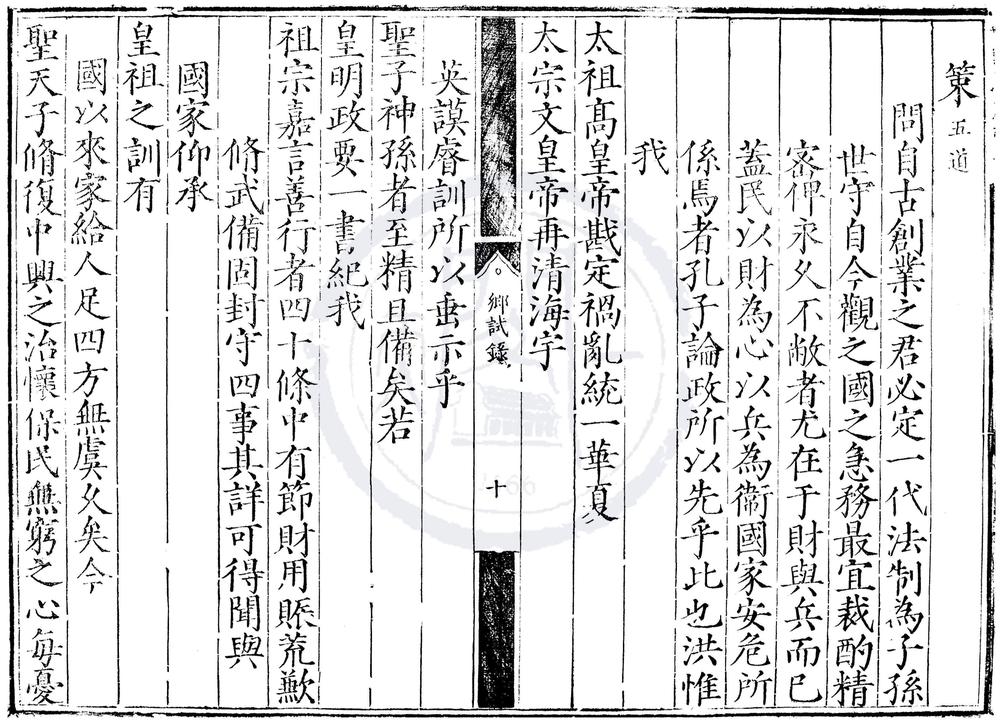 策五道
問自古創業之君必定一代法制為子孫
世守自今觀之國之急務最宜裁酌精
密俾永久不敝者尤在于財與兵而已
蓋民以財為心以兵為衛國家安危所
係焉者孔子論政所以先乎此也洪惟
我
太祖髙皇帝戡定禍亂統一華夏
太宗文皇帝再清海宇
鄉試錄
十
英謨睿訓所以垂示乎
聖子神孫者至精且備矣若
皇明政要一書紀我
祖宗嘉言善行者四十條中有節財用賑荒歉
脩武備固封守四事其詳可得聞與
國家仰承
皇祖之訓有
國以來家給人足四方無虞久矣今
聖天子脩復中興之治懷保民無窮之心每憂